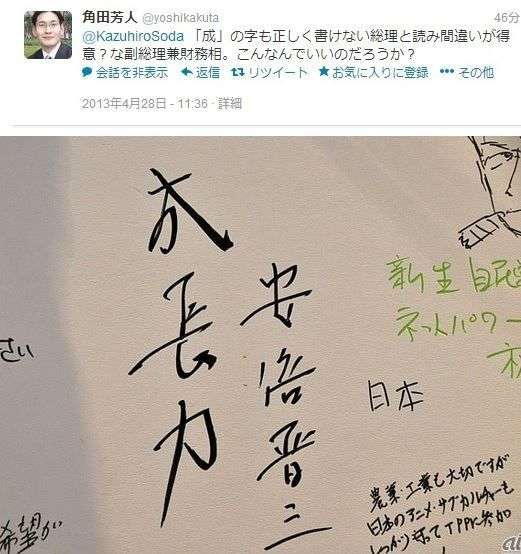 角田芳人 @yoshikakuta
46分
@KazuhiroSoda 「成」の字も正しく書けない総理と読み間違いが得
意？な副総理兼財務相。こんなんでいいのだろうか？
会話を非表示 返信 リツイート お気に入りに登録 その他
2013年4月28日 - 11:36 · 詳細
成長力
安倍晋三
新生自民
ネットパワー
日本
農業・工業も大切ですが
日本のアニメ・サブカルチャーも
TPPに参加
さい
希望が